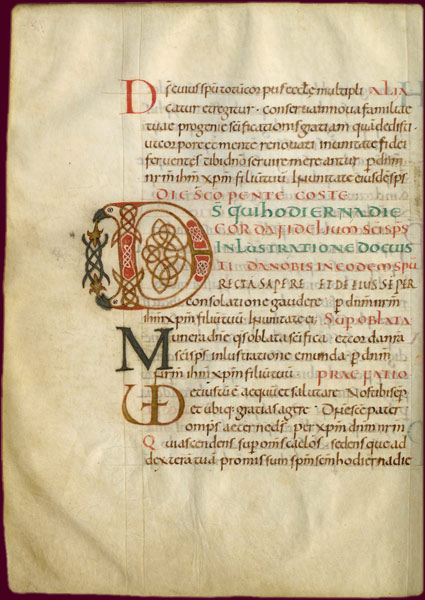 Ds cuius spu totum corpus eccle multipli ALIA
catur et regitur · conserua in noua familiae
tuae progenie scificationis gratiam quam dedisti ·
ut corpore et mente renouati in unitate fidei
feruentes tibi dne seruire mereantur · p dnm
nrm ihm xpm filium tuum · In unitate eiusdem sps
DIE SCO PENTECOSTE ·
DS QUI HODIERNA DIE
CORDA FIDELIUM SCI SPS
INLUSTRATIONE DOCUIS
TI · DA NOBIS IN EODEM SPU
RECTA SAPERE · ET DE EIUS SEPER
consolatione gaudere · p dnm nrm
ihm xpm filium tuum · In unitate ei SUP OBLATA
Munera dne qs oblata scifica · et corda nra
sci sps inlustratione emunda · p dnm
nrm ihm xpm filium tuum PRAEFATIO
UD et iustu e aequu et salutare · Nos tibi sep
et ubiq gratias agere · Dne sce pater
omps aeterne ds · per xpm dnm nrm
Qui ascendens sup oms caelos · sedensque ad
dexteram tuam · promissum spm scm hodierna die